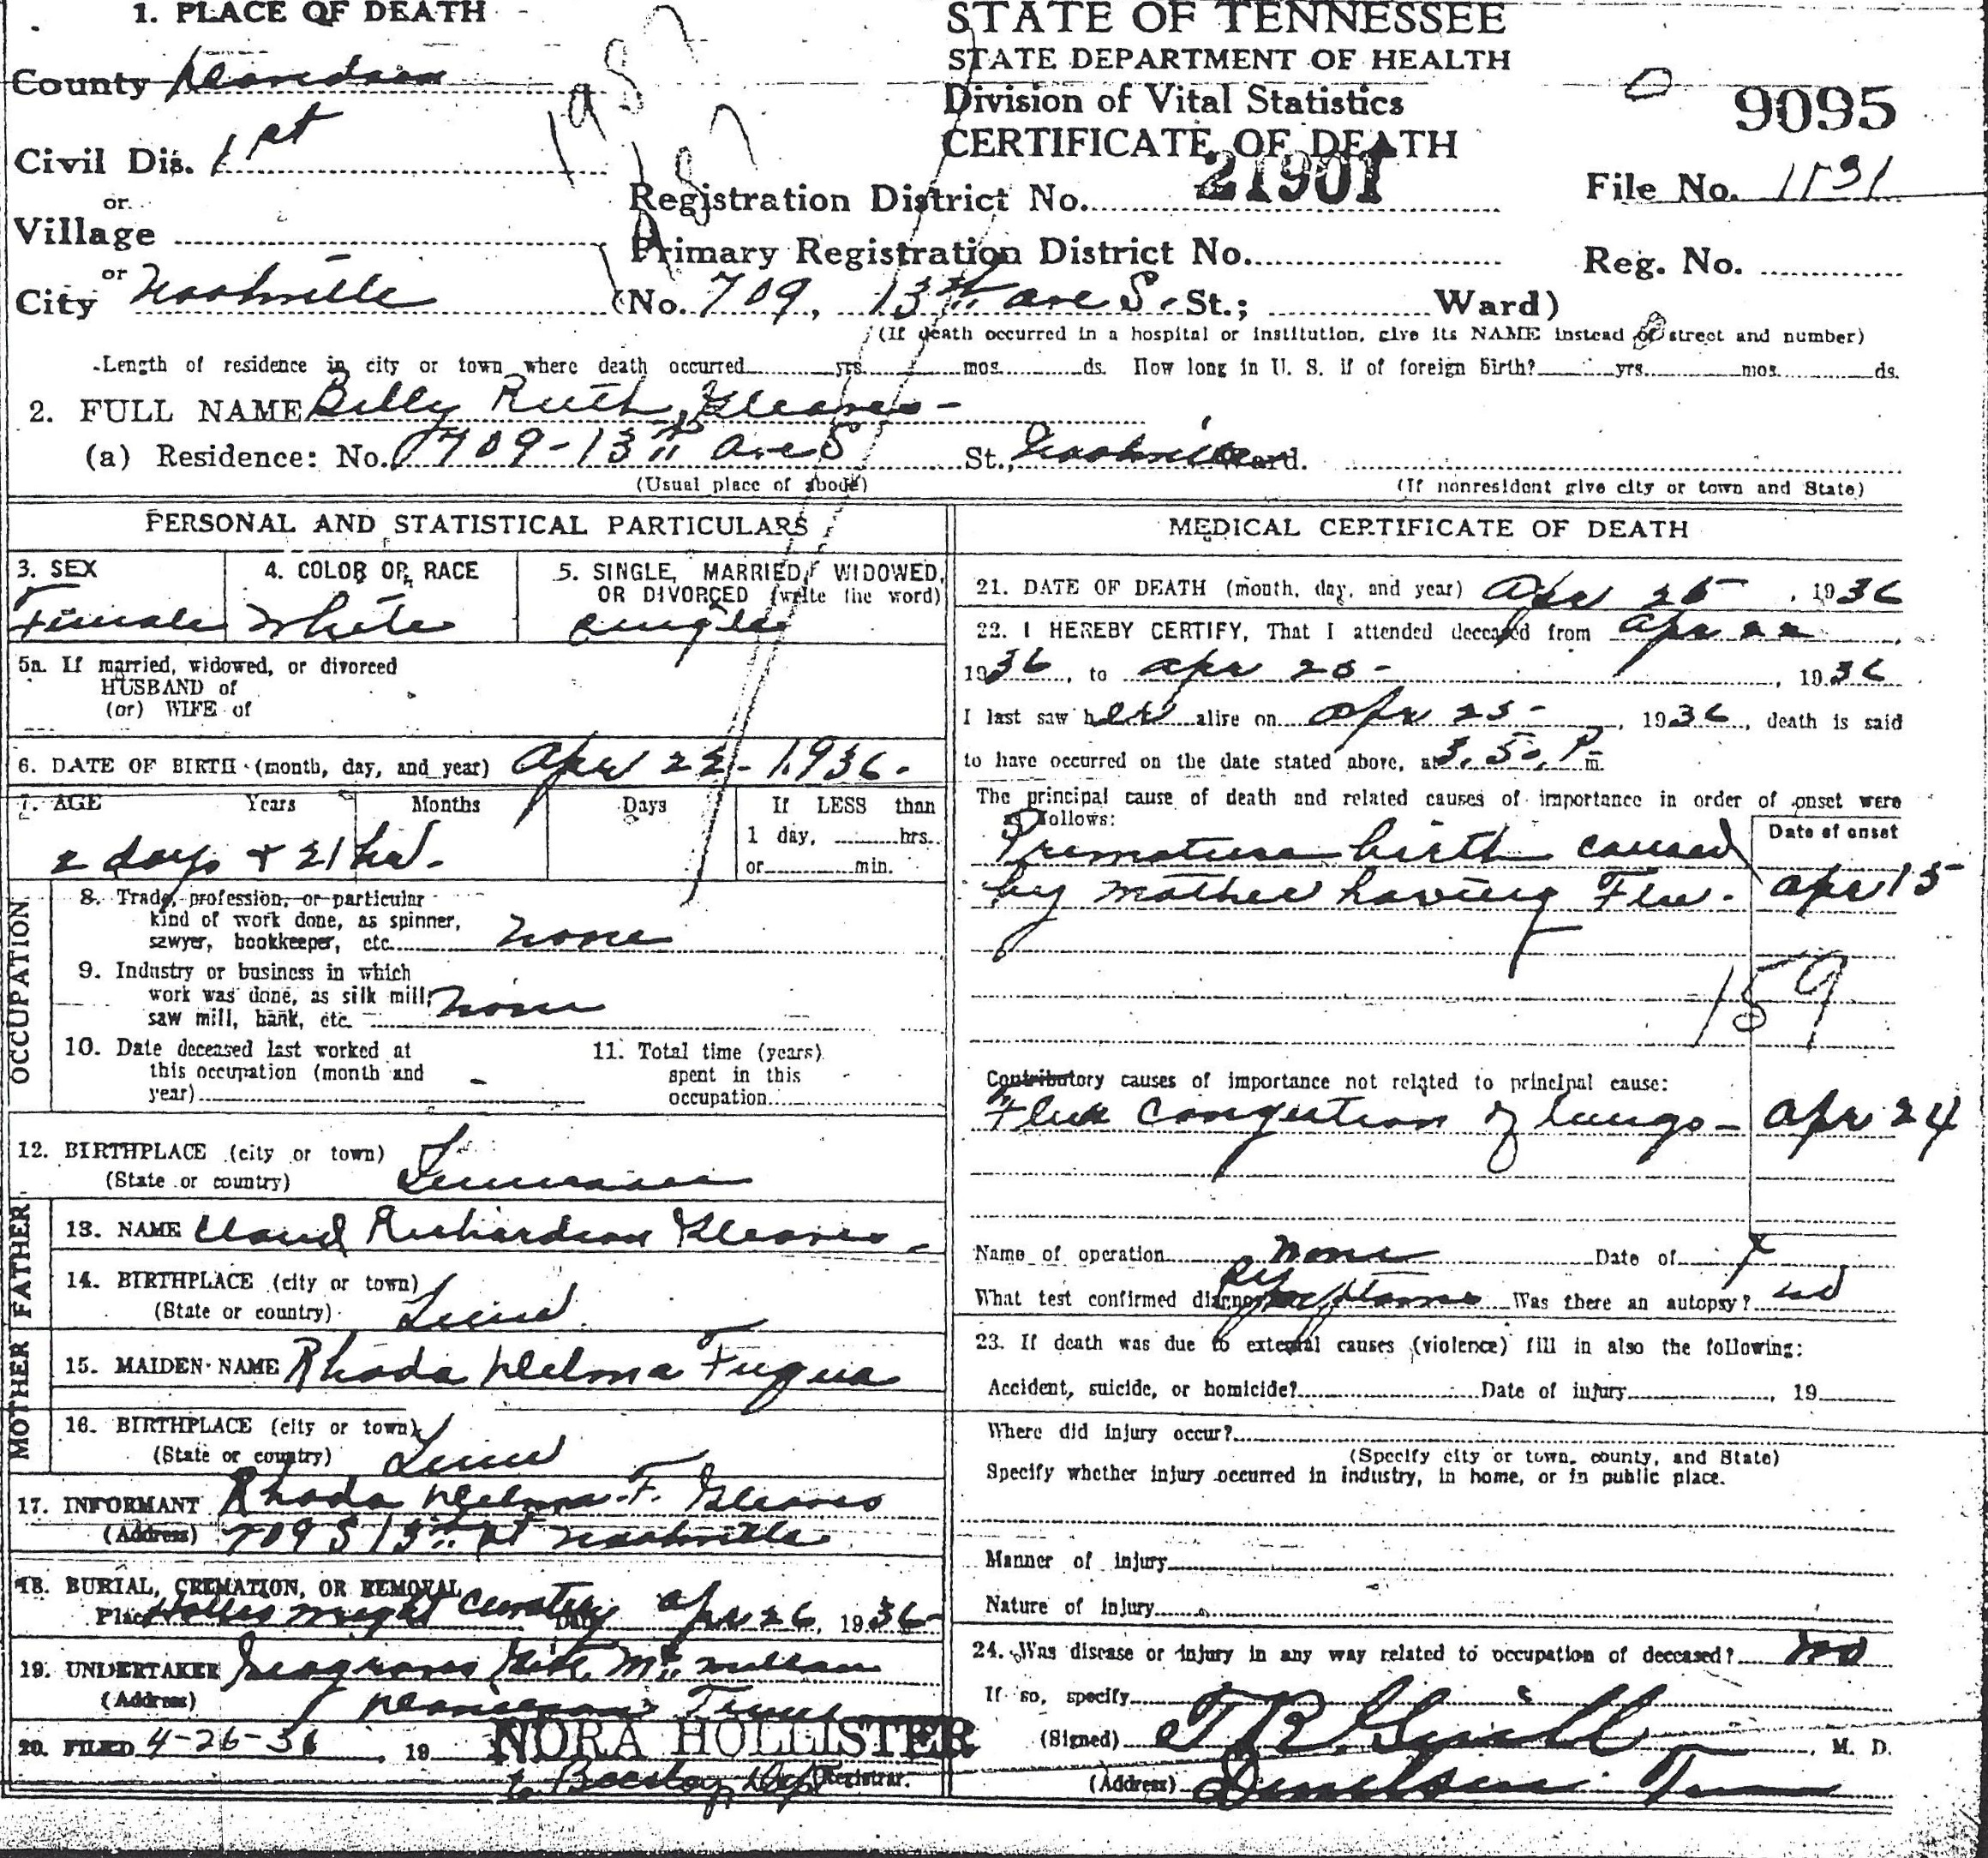 1. PLACE OF DEATH
County Davidson
Civil Dis. 1st
or
Village
or
City Nashville
STATE OF TENNESSEE
STATE DEPARTMENT OF HEALTH
Division of Vital Statistics
CERTIFICATE OF DEATH
9095
21901
Registration District No.
File No. 1531
Primary Registration District No.
Reg. No.
(No. 709, 13th ave S. St.; Ward)
(If death occurred in a hospital or institution, give its NAME instead of street and number)
Length of residence in city or town where death occurred yrs. mos. ds. How long in U. S. if of foreign birth? yrs. mos. ds.
2. FULL NAME Billy Ruth Gleaves -
(a) Residence: No. 709-13th ave S St., Nashville Ward.
(Usual place of abode) (If nonresident give city or town and State)
PERSONAL AND STATISTICAL PARTICULARS
3. SEX
Female
4. COLOR OR RACE
White
5. SINGLE, MARRIED, WIDOWED,
OR DIVORCED (write the word)
single
5a. If married, widowed, or divorced
HUSBAND of
(or) WIFE of
6. DATE OF BIRTH (month, day, and year) Apr 22 - 1936 -
7. AGE Years Months Days If LESS than
1 day, hrs.
or min.
2 days + 21 hrs.
OCCUPATION
8. Trade, profession, or particular
kind of work done, as spinner,
sawyer, bookkeeper, etc. none
9. Industry or business in which
work was done, as silk mill,
saw mill, bank, etc. none
10. Date deceased last worked at
this occupation (month and
year) -
11. Total time (years)
spent in this
occupation
12. BIRTHPLACE (city or town)
(State or country) Tennessee
FATHER
13. NAME Claud Richardson Gleaves -
14. BIRTHPLACE (city or town)
(State or country) Tenn
MOTHER
15. MAIDEN NAME Rhoda Delma Fuqua
16. BIRTHPLACE (city or town)
(State or country) Tenn
17. INFORMANT Rhoda Delma F. Gleaves
(Address) 709 S 13th St Nashville
18. BURIAL, CREMATION, OR REMOVAL
Place Wright Cemetery Date Apr 26, 1936
19. UNDERTAKER
(Address) Tenn
20. FILED 4-26-36, 19 NORA HOLLISTER
Registrar.
MEDICAL CERTIFICATE OF DEATH
21. DATE OF DEATH (month, day, and year) Apr 25, 1936
22. I HEREBY CERTIFY, That I attended deceased from Apr 22,
1936, to Apr 25 -, 1936
I last saw her alive on Apr 25 -, 1936, death is said
to have occurred on the date stated above, at 3.50 P m.
The principal cause of death and related causes of importance in order of onset were
as follows:
Date of onset
Premature birth caused
by mother having Flu. apr 15
159
Contributory causes of importance not related to principal cause:
Flu congestion of lungs - apr 24
Name of operation none Date of x
What test confirmed diagnosis? symptoms Was there an autopsy? no
23. If death was due to external causes (violence) fill in also the following:
Accident, suicide, or homicide? Date of injury, 19
Where did injury occur?
(Specify city or town, county, and State)
Specify whether injury occurred in industry, in home, or in public place.
Manner of injury
Nature of injury
24. Was disease or injury in any way related to occupation of deceased? No
If so, specify
(Signed) M. D.
(Address) Donelson Tenn